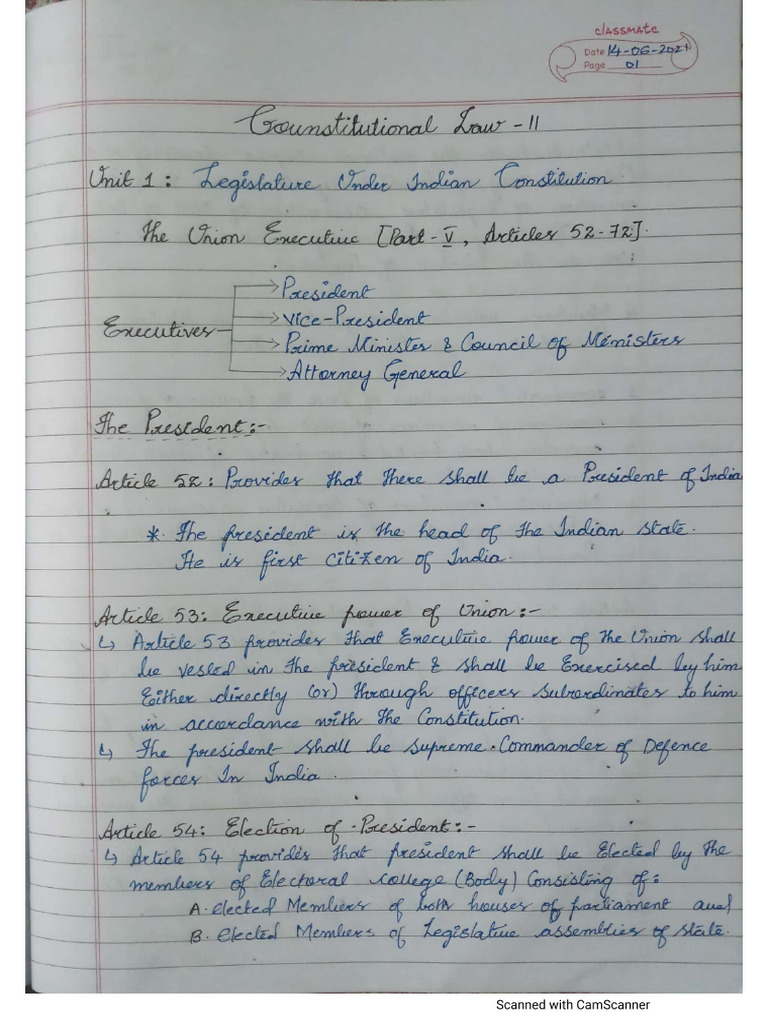 classmate
Date 14-06-2021
Page 01
Counstitutional Law - II
Unit 1 : Legislature Under Indian Constitution.
The Union Executive [Part-V, Articles 52-72].
Executives
President
Vice-President
Prime Minister & Council of Ministers
Attorney General
The President:-
Article 52: Provides that there shall be a President of India
* The president is the head of the Indian state.
He is first citizen of India.
Article 53: Executive power of Union:-
↳ Article 53 provides that Executive power of the Union shall
be vested in the president & shall be Exercised by him
Either directly (or) through officers subordinates to him
in accordance with the Constitution.
↳ The president shall be supreme Commander of Defence
forces In India.
Article 54: Election of President:-
↳ Article 54 provides that president shall be Elected by the
members of Electoral college (Body) Consisting of:
A. Elected Members of both houses of parliament and
B. Elected Members of Legislative assemblies of state.
Scanned with CamScanner